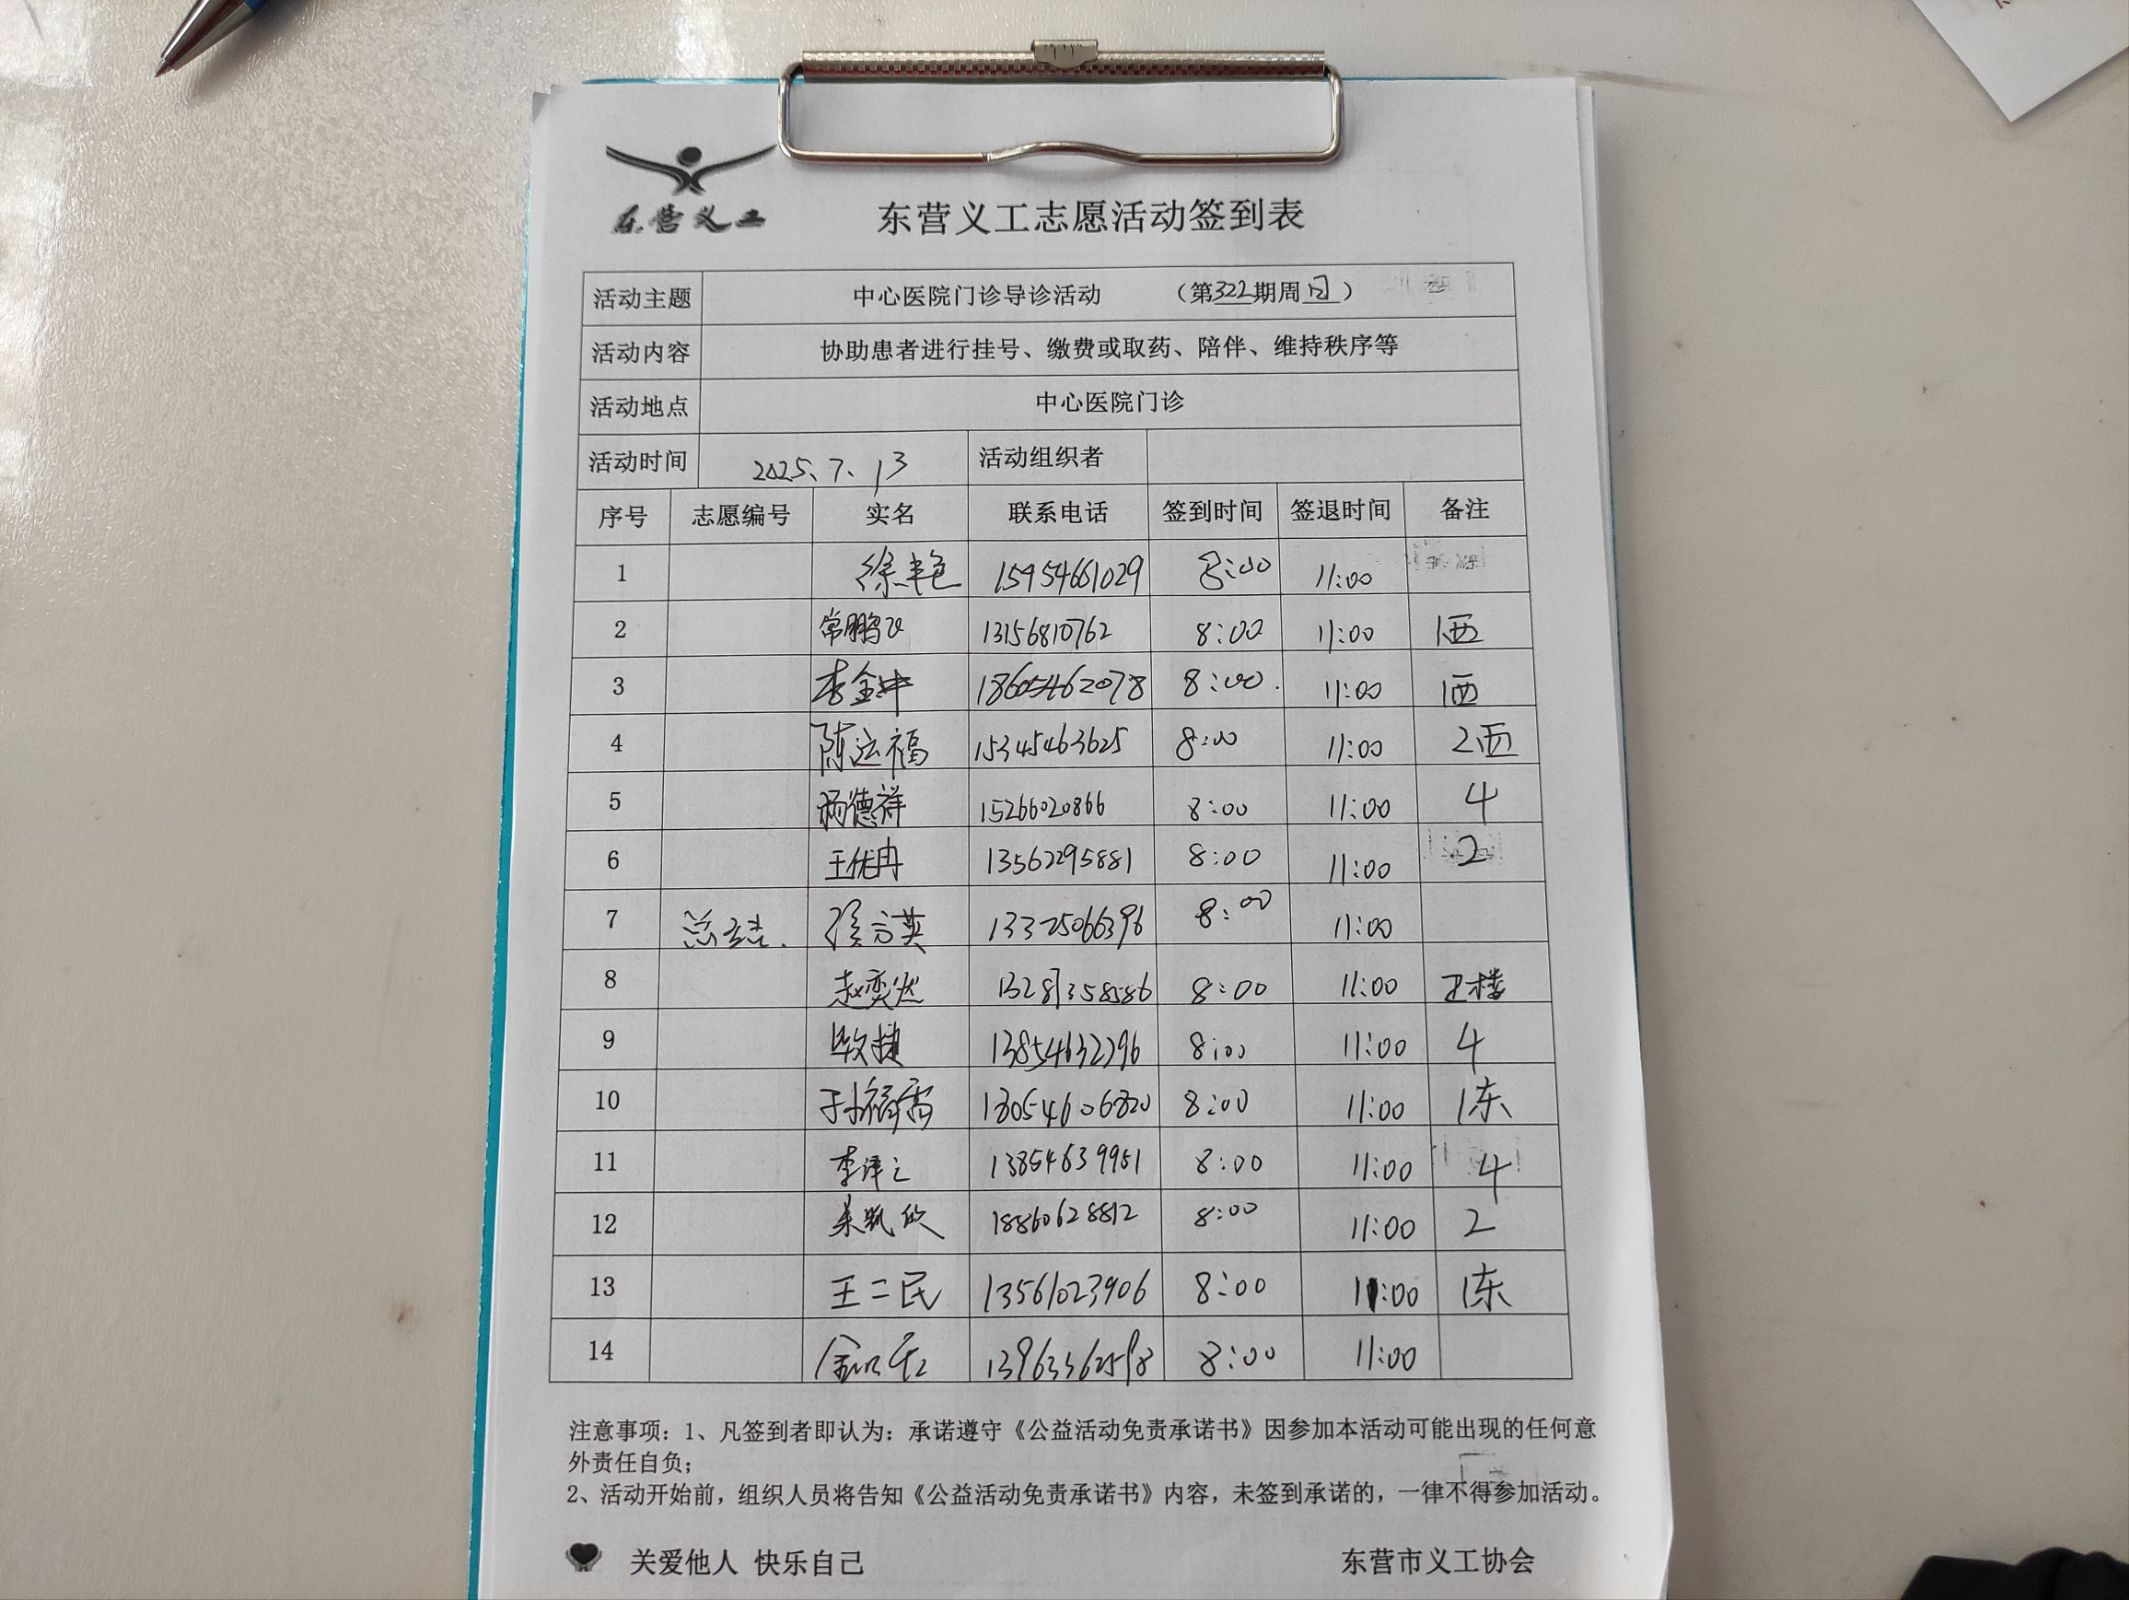 东营义工
东营义工志愿活动签到表
活动主题 中心医院门诊导诊活动 （第322期周日）
活动内容 协助患者进行挂号、缴费或取药、陪伴、维持秩序等
活动地点 中心医院门诊
活动时间 2025.7.13 活动组织者
序号 志愿编号 实名 联系电话 签到时间 签退时间 备注
1 15954661029 8:00 11:00
2 常鹏飞 13156810762 8:00 11:00 1西
3 李金中 18605462078 8:00. 11:00 1西
4 陈运福 15345463625 8:00 11:00 2西
5 杨德祥 15266020866 8:00 11:00 4
6 王优冉 13562295881 8:00 11:00 2
7 总结. 13325066396 8:00 11:00
8 赵奕然 8:00 11:00 正楼
9 13854632296 8:00 11:00 4
10 13054606820 8:00 11:00 1东
11 李泽之 13854639951 8:00 11:00 4
12 18860628812 8:00 11:00 2
13 王二民 13561023906 8:00 11:00 1东
14 8:00 11:00
注意事项：1、凡签到者即认为：承诺遵守《公益活动免责承诺书》因参加本活动可能出现的任何意
外责任自负；
2、活动开始前，组织人员将告知《公益活动免责承诺书》内容，未签到承诺的，一律不得参加活动。
关爱他人 快乐自己 东营市义工协会